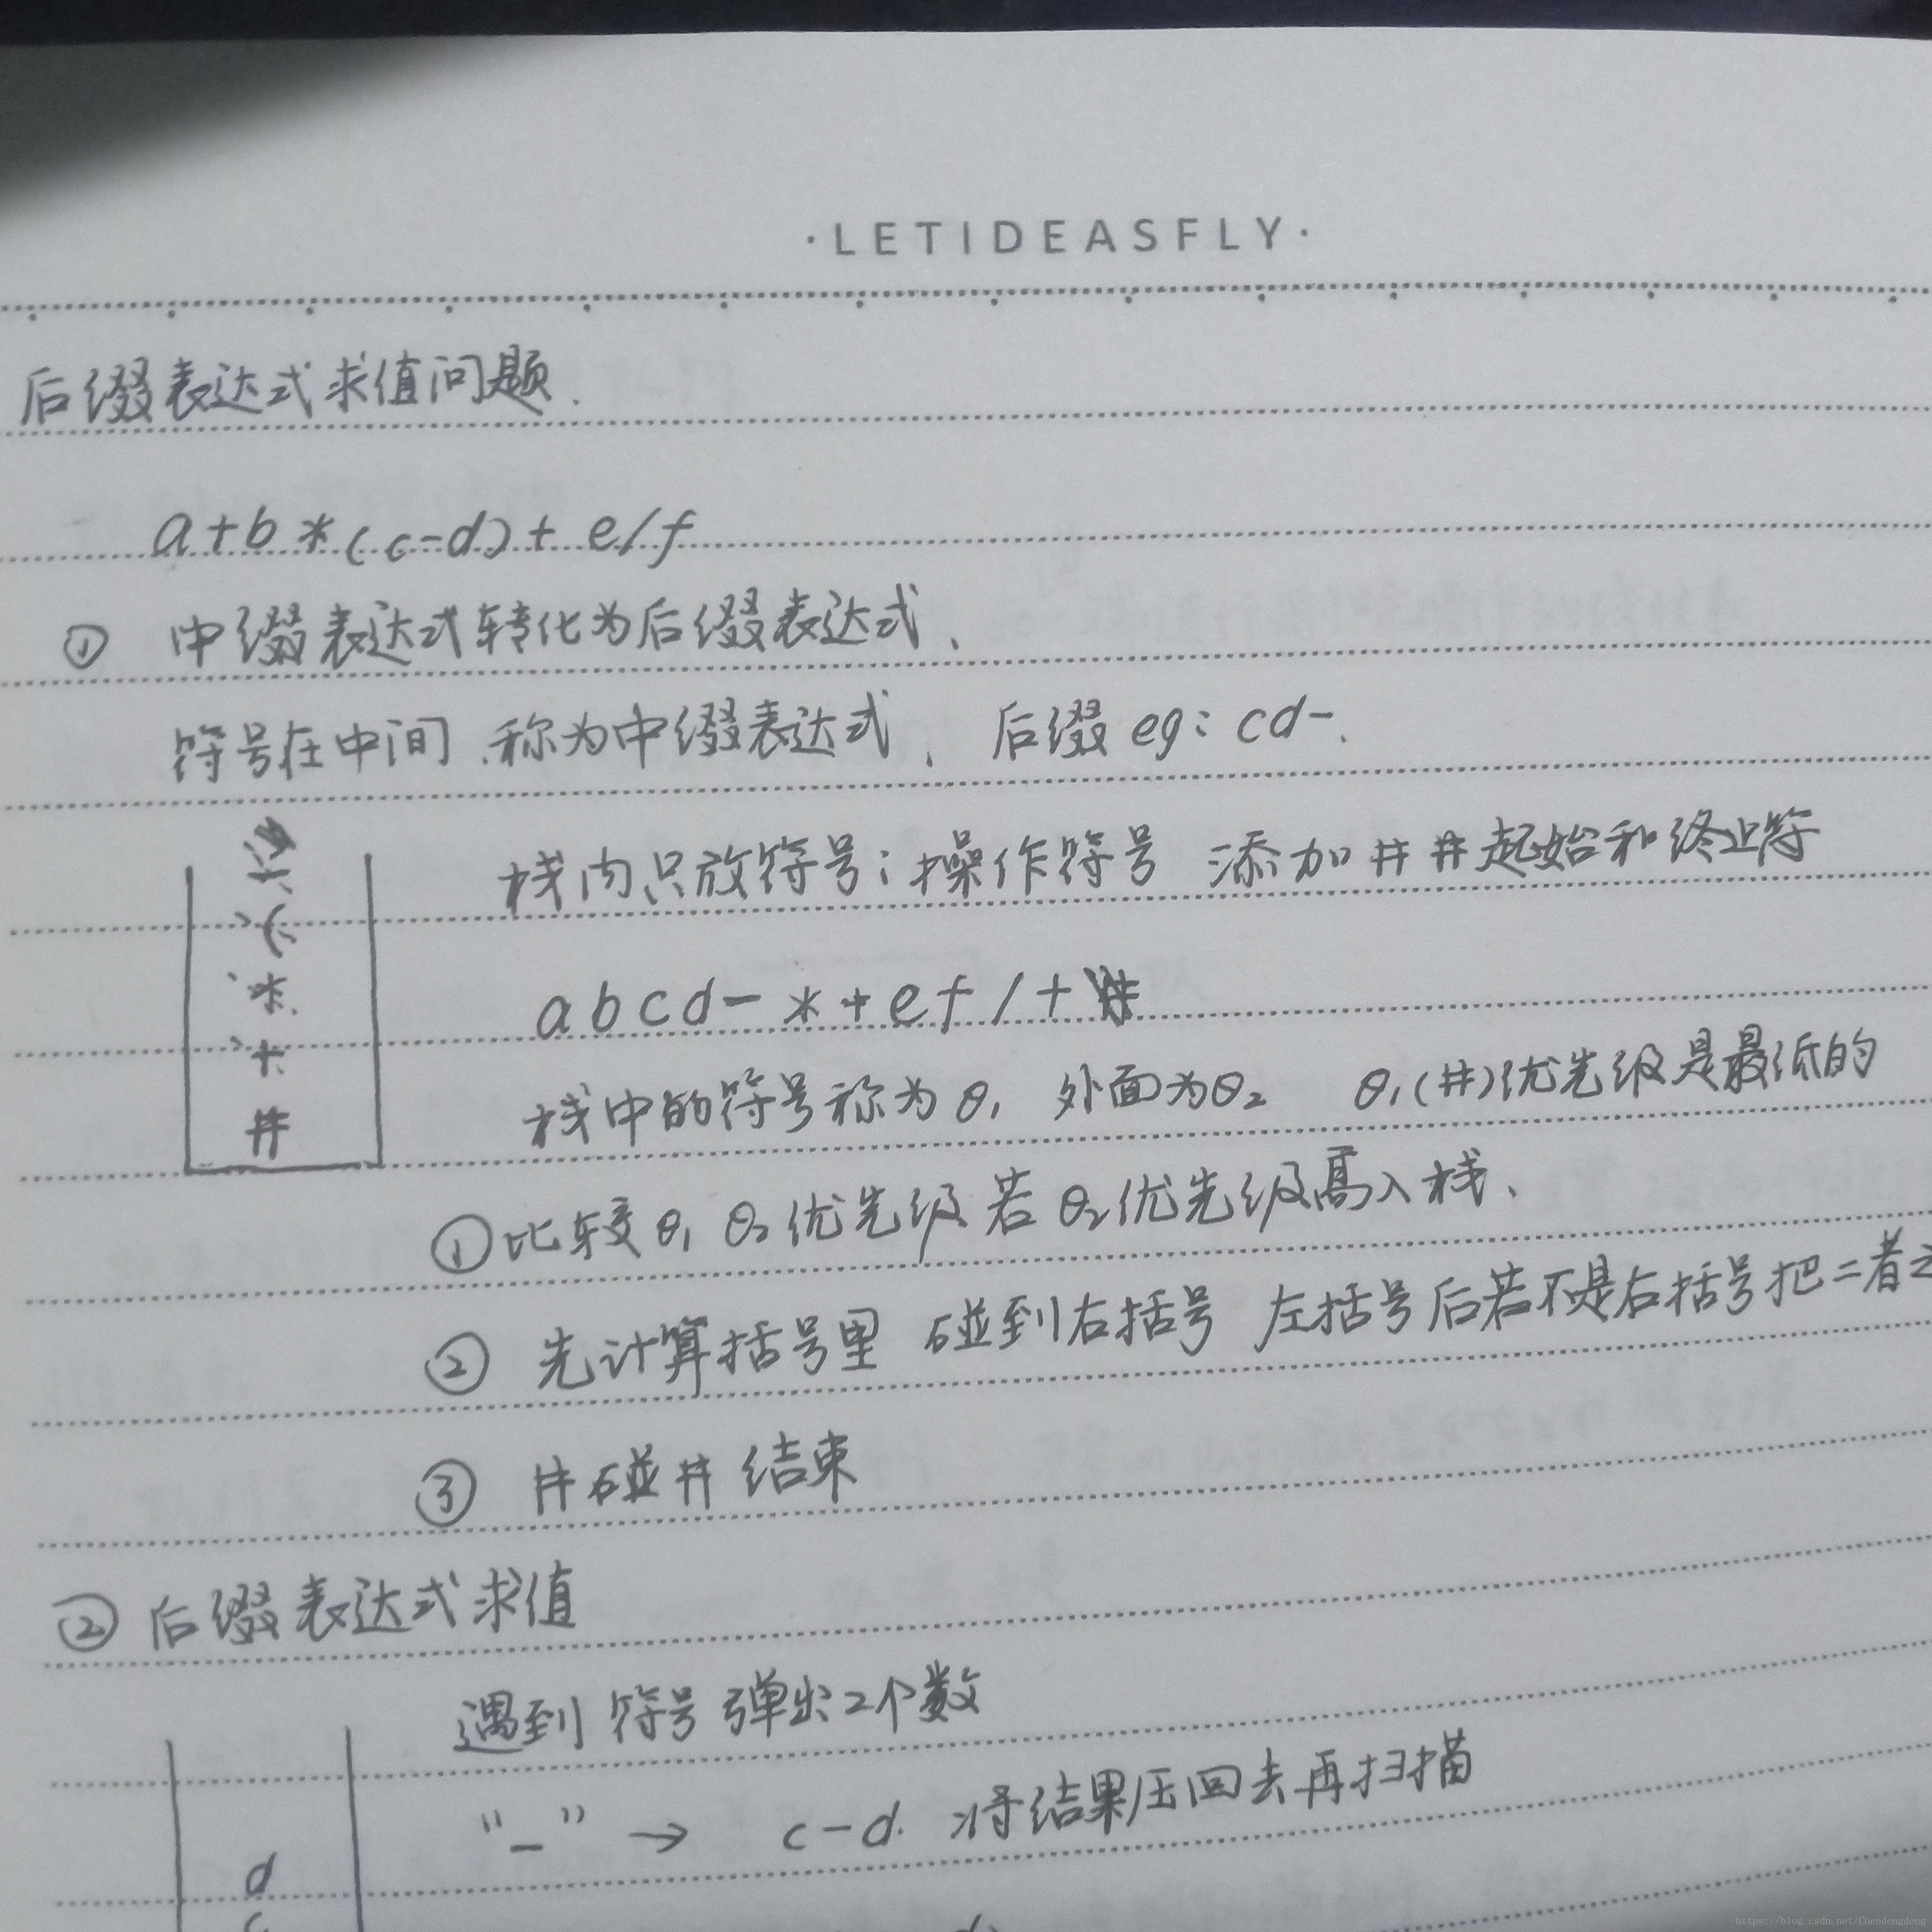 ·LETIDEASFLY·
后缀表达式求值问题.
a+b*(c-d)+e/f
① 中缀表达式转化为后缀表达式、
符号在中间、称为中缀表达式、后缀eg: cd-、
栈内只放符号;操作符号 添加# #起始和终止符
(
*
+
#
abcd-*+ef/+
栈中的符号称为θ₁ 外面为θ₂ θ₁(#)优先级是最低的
①比较θ₁ θ₂优先级 若θ₂优先级高入栈、
② 先计算括号里 碰到右括号 左括号后若不是右括号把二者
③ #碰# 结束
②后缀表达式求值
遇到符号弹出2个数
"-" → c-d. 将结果压回去再扫描
d
c
https://blog.csdn.net/Chendengdeng